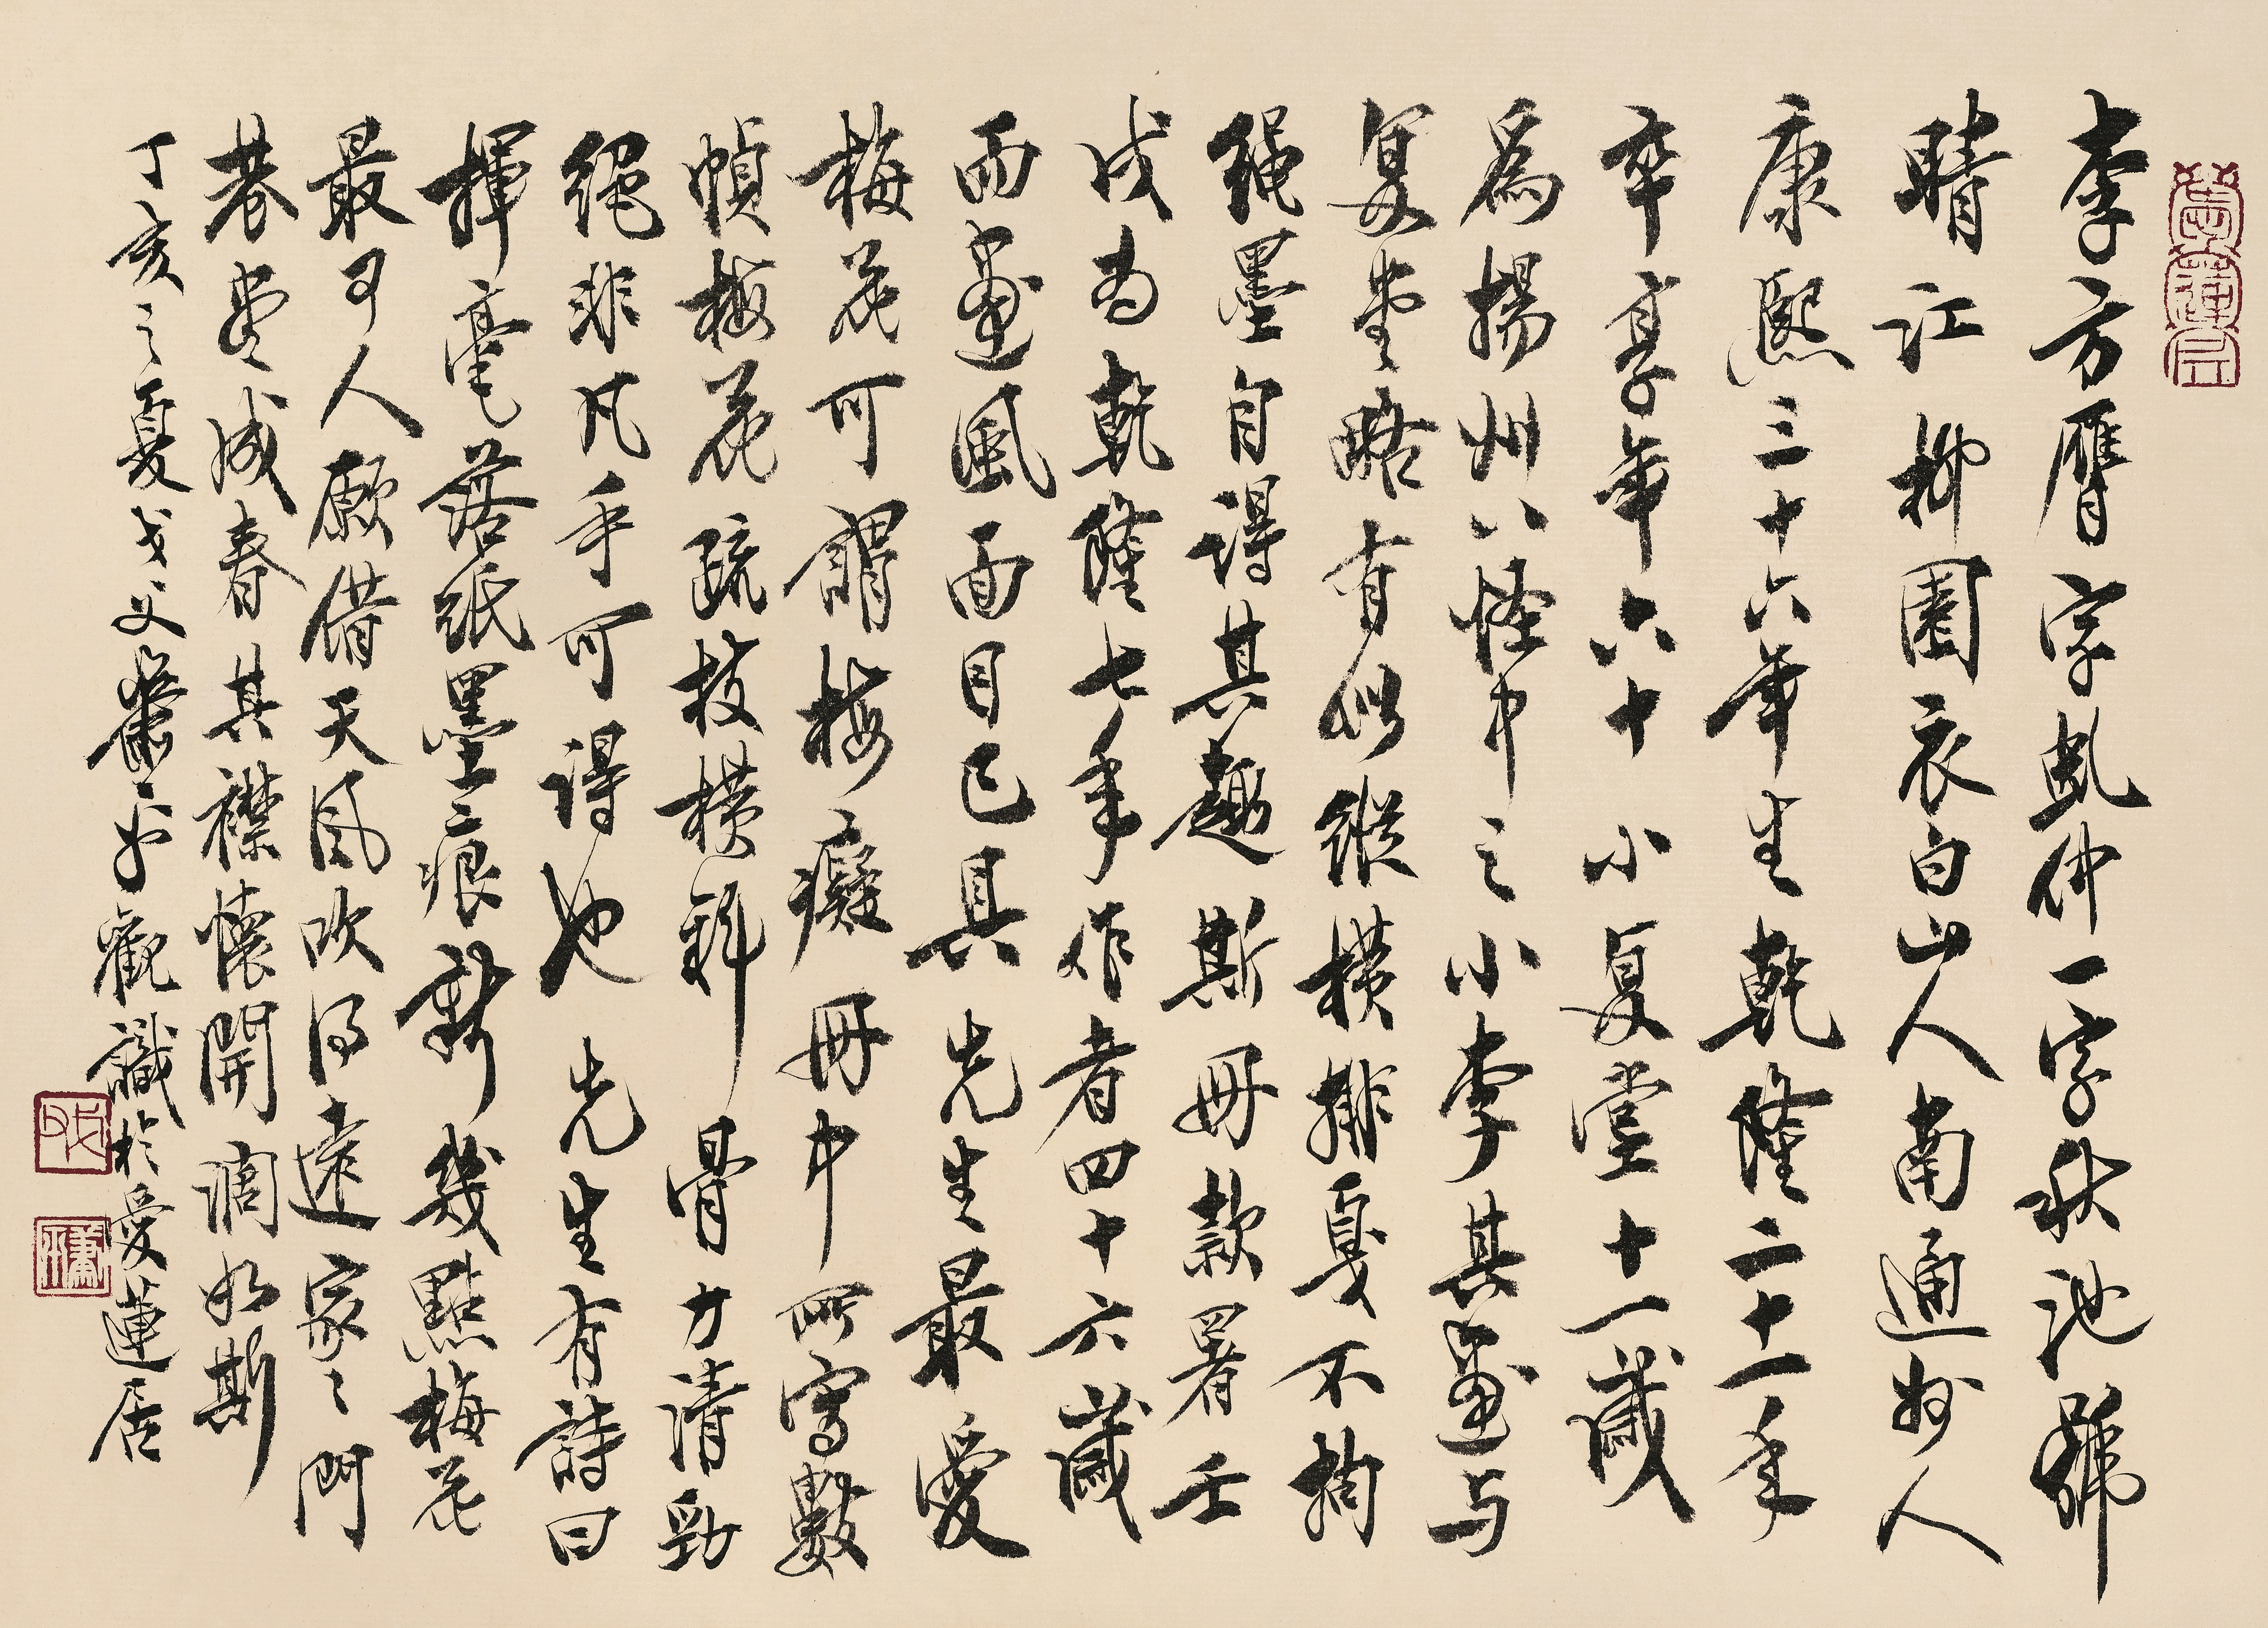 愛蓮居
李方膺字虬仲一字秋池號
晴江抑園衣白山人南通州人
康熙三十六年生乾隆二十一年
卒享年六十小復堂十一歲
為揚州八怪中之小李其畫与
復堂略有似縱橫排戛不拘
繩墨自得其趣斯冊款署壬
戌為乾隆七年作者四十六歲
而畫風面目已具先生最愛
梅花可謂梅癡冊中所寫數
幀梅花疏枝橫斜骨力清勁
絕非凡手可得也先生有詩曰
揮毫落紙墨痕新幾點梅花
最可人願借天風吹得遠家家門
巷盡成春其襟懷開濶如斯
丁亥之夏戈父蕭平觀識於愛蓮居
戈父
蕭平